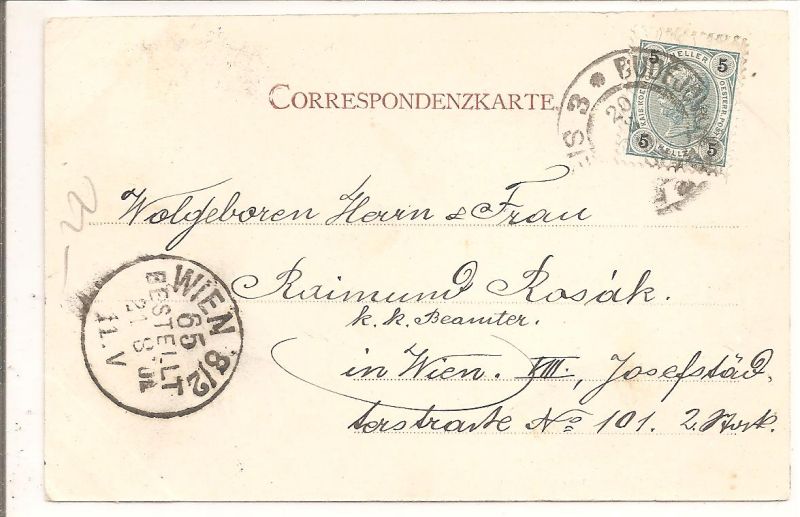 CORRESPONDENZKARTE.
5 HELLER 5
KAIS. KOE OESTERR. POST
5 5
BUDĚJ
20
3
Wolgeboren Herrn & Frau
Raimund Rosák.
k. k. Beamter.
in Wien. VIII., Josefstäd,
terstraße No 101. 2. Stock.
WIEN 8/2
65
BESTELLT
21. 8.
11. V